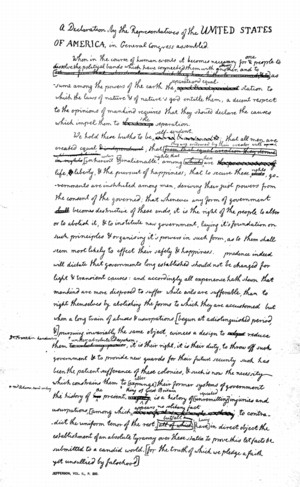 a Declaration by the Representatives of the UNITED STATES
OF AMERICA, in General Congress assembled.
When in the course of human events it becomes necessary for one people to
dissolve the political bands which have connected them with another, and to
assume among the powers of the earth the separate and equal station to
which the laws of nature & of nature's god entitle them, a decent respect
to the opinions of mankind requires that they should declare the causes
which impel them to the separation.
We hold these truths to be self-evident, that all men are
created equal
inherent & inalienable among
life, & liberty, & the pursuit of happiness; that to secure these rights, go-
vernments are instituted among men, deriving their just powers from
the consent of the governed; that whenever any form of government
becomes destructive of these ends, it is the right of the people to alter
or to abolish it, & to institute new government, laying it's foundation on
such principles & organising it's powers in such form, as to them shall
seem most likely to effect their safety & happiness. prudence indeed
will dictate that governments long established should not be changed for
light & transient causes: and accordingly all experience hath shewn that
mankind are more disposed to suffer while evils are sufferable, than to
right themselves by abolishing the forms to which they are accustomed. but
when a long train of abuses & usurpations [begun at a distinguished period
& pursuing invariably the same object, evinces a design to reduce
them it is their right, it is their duty, to throw off such
government & to provide new guards for their future security. such has
been the patient sufferance of these colonies; & such is now the necessity
which constrains them to [expunge] their former systems of government.
the history of present is a history of [unremitting] injuries and
usurpations, [among which appears no solitary fact to contra-
dict the uniform tenor of the rest have] in direct object the
establishment of an absolute tyranny over these states. to prove this let facts be
submitted to a candid world, [for the truth of which we pledge a faith
yet unsullied by falsehood]